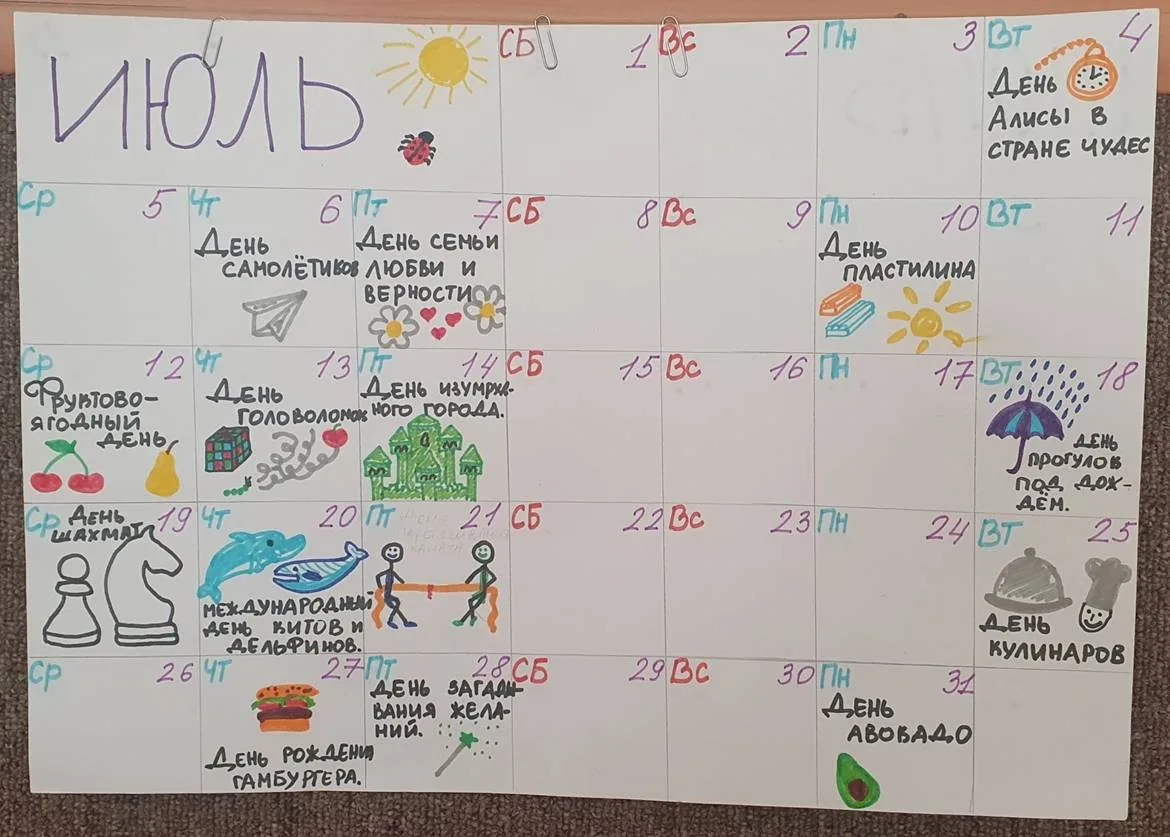 ИЮЛЬ
СБ 1
Вс 2
Пн 3
Вт 4
День
Алисы в
стране чудес
Ср 5
Чт 6
День
самолётиков
Пт 7
День семьи
любви и
верности
СБ 8
Вс 9
Пн 10
День
пластилина
Вт 11
Ср 12
Фруктово-
ягодный
день
Чт 13
День
головоломок
Пт 14
День изумруд-
ного города.
СБ 15
Вс 16
Пн 17
Вт 18
День
прогулов
под дож-
дём.
Ср 19
День
шахмат
Чт 20
Международный
день китов и
дельфинов.
Пт 21
День
каната
СБ 22
Вс 23
Пн 24
Вт 25
День
кулинаров
Ср 26
Чт 27
День рождения
гамбургера.
Пт 28
День загады-
вания жела-
ний.
СБ 29
Вс 30
Пн 31
День
авокадо